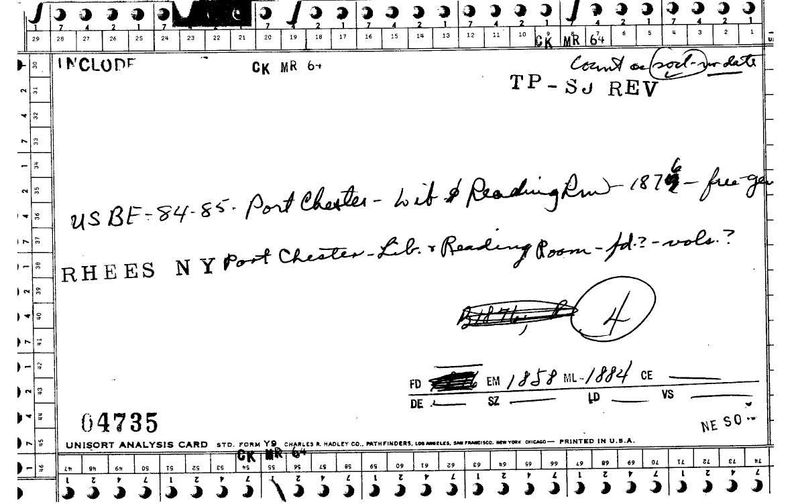 29 28 27 26 25 24 23 22 21 20 19 18 17 16 15 14 13 12 11 10 9 8 7 6 5 4 3 2 1
CK MR 64
INCLUDE CK MR 64 Count as soc - no date
TP-SJ REV
USBE-84-85. Port Chester - Lib & Reading Rm - 1876 - free-gen
RHEES NY Port Chester - Lib. & Reading Room - fd.? - vols.?
B1876, R 4
FD EM 1858 ML-1884 CE
DE SZ LD VS
04735 NE SO
UNISORT ANALYSIS CARD STD. FORM Y9 CHARLES R. HADLEY CO., PATHFINDERS, LOS ANGELES, SAN FRANCISCO, NEW YORK, CHICAGO — PRINTED IN U.S.A.
CK MR 64
47 48 49 50 51 52 53 54 55 56 57 58 59 60 61 62 63 64 65 66 67 68 69 70 71 72 73 74